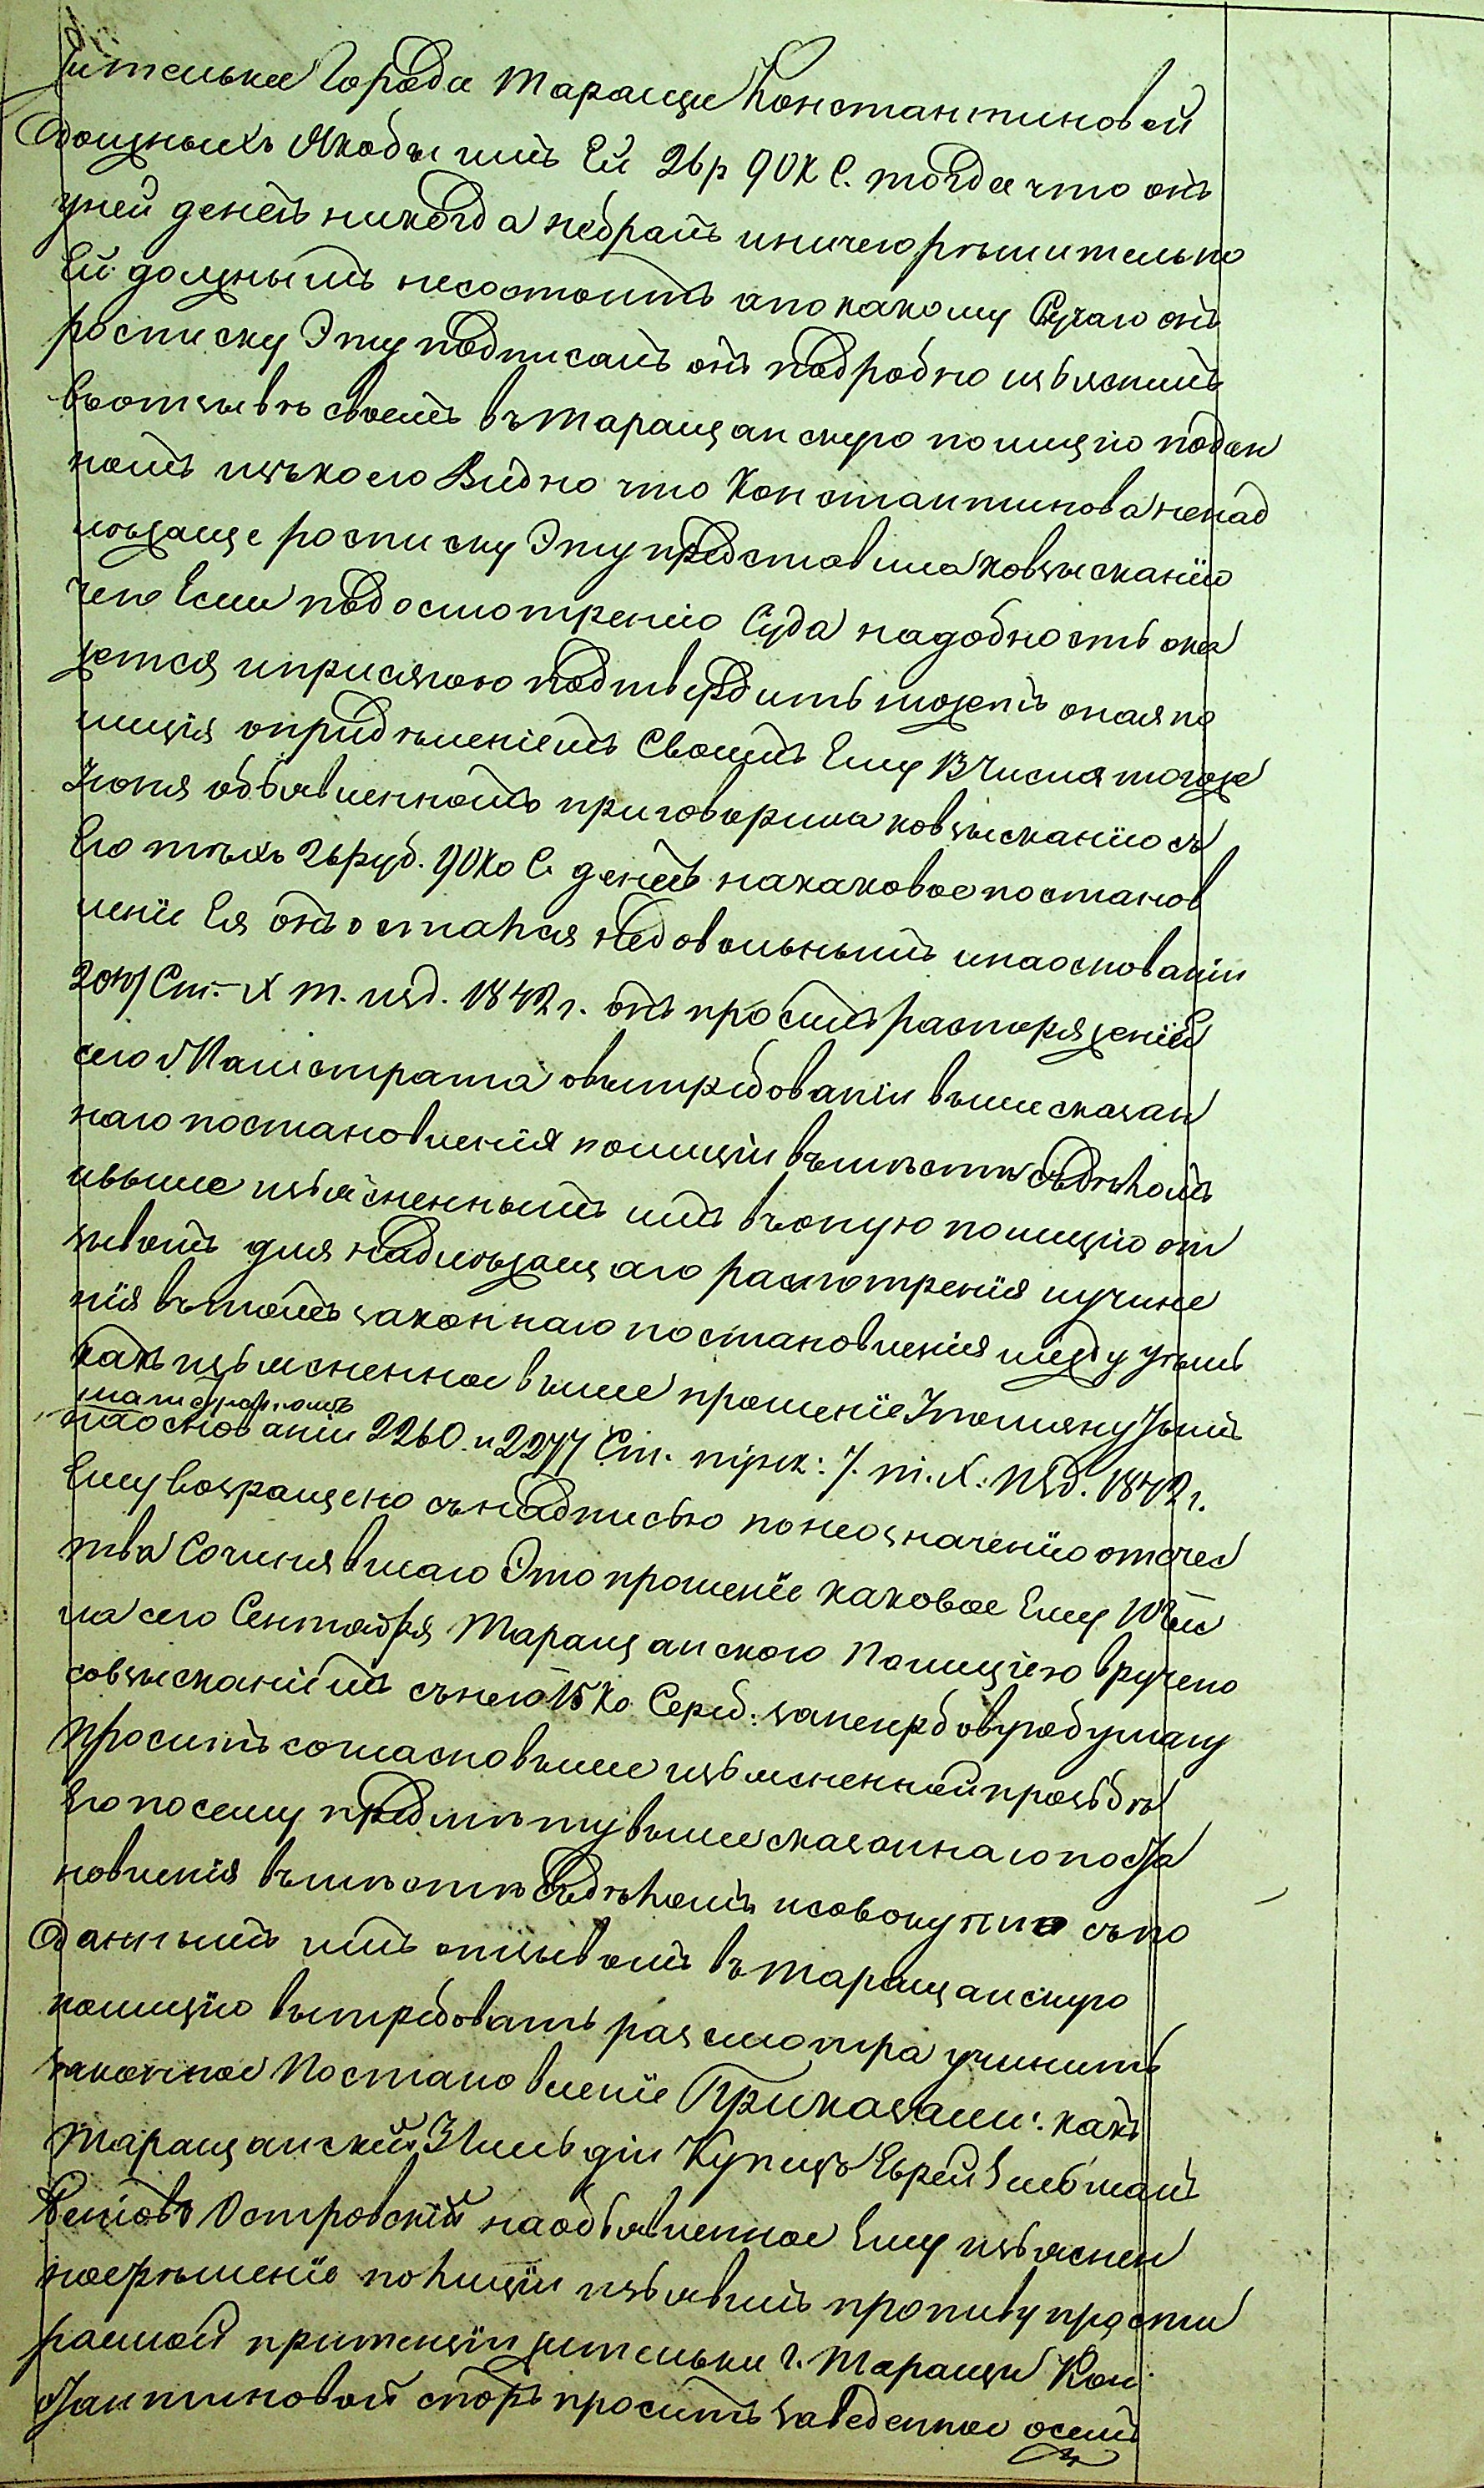 жительке Города Таращи Константиновой
должныхъ Якобы имъ Ей 26 р 90 к С. тогда что онъ
уней денегъ никогда небралъ иничего рѣшительно
Ей должнымъ несостоитъ апокакому Случаю онъ
росписку Эту подписалъ онъ подробно изъяснилъ
въотзывѣ своемъ въ Таращанскую полицію подан
номъ изъкоего Видно что Константинова ненад
лежаще росписку Эту представила ковзысканію
чего Еслиподосмотренію Суда надобность ока
жется иприсягою подтвердить можетъ оная по
лиція опридѣленіемъ Своимъ Ему 13 Числа тогоже
Іюля объявленномъ приговорила ковзысканію съ
Его тѣхъ 26 руб. 90 ко С. денегъ накаковое постанов
леніе Ея онъ остался недовольнымъ инаосновании
Ст. X т. изд. 1842 г. онъ проситъ распоряженіе
сего Магистрата овытребованіи вышесказан
наго постановленія полиціи вмѣстѣ съдѣломъ
ивыше изъясненнымъ имъ въоную полицію от
зывомъ для надлежащаго расмотренія иучине
нія вътомъ законнаго постановленія между тѣмъ
какъ изъясненное выше прошеніе Упомянутымъ
магистратомъ
наоснованіи 2260. и 2277 Ст. прик: 7. т. X: изд. 1842 г.
Ему возращено съ надписью понеозначенію отчес
тва Сочинявшаго Это прошеніе каковое Ему 10 Чис
ла сего Сентября Таращанскою Полиціею вручено
совзысканіемъ съ него 15 ко Сереб: загербовую бумагу
проситъ согласно выше изъясненной прозьбѣ
Его посему предмѣту вышесказаннаго поста
новленія вмѣстѣ съдѣломъ исовокупно съ по
даннымъ имъ отзывомъ въ таращанскую
полицію вытребовать разсмотря учинить
законное Постановленіе Приказали: какъ
Таращанскій 3 Гильдіи Купецъ Еврей
Островскій наобъявленное Ему изъяснен
ное рѣшеніе полиціи изъявилъ противу прости
раемой притензіи жительки г. Таращи Кон
стантиновой споръ проситъ заведенное осемъ